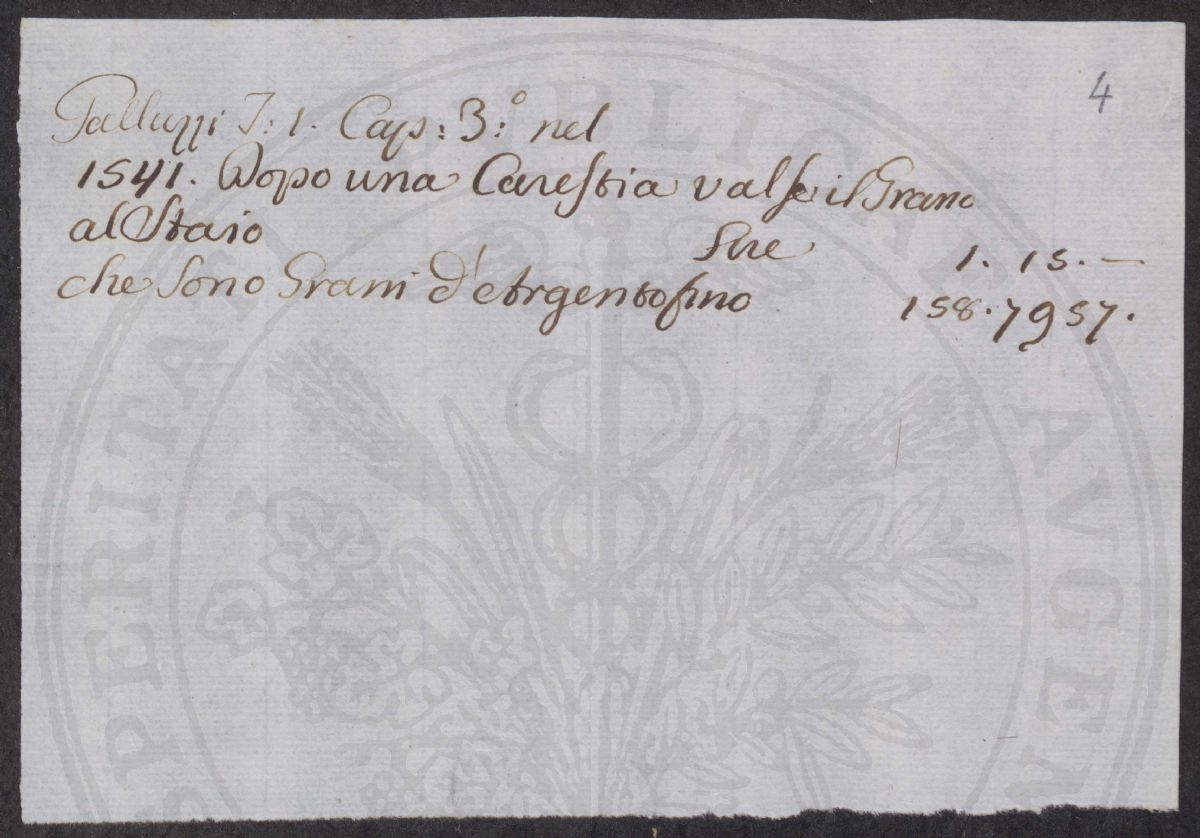 4
Galluzzi T: 1. Cap: 3.º nel
1541. Dopo una Carestia valse il Grano
al Staio Lire 1. 15. —
che sono Grani d'Argento fino 158. 7957.
PERITAS PUBLICAE AUGEN